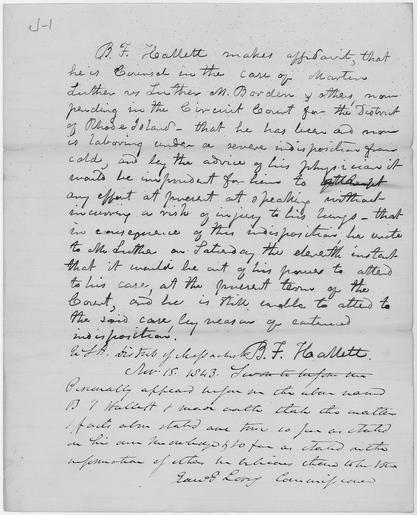 J-1
B. F. Hallett makes affidavit, that
he is Counsel in the case of Martin
Luther vs Luther M. Borden & others, now
pending in the Circuit Court for the District
of Rhode Island - that he has been and now
is laboring under a severe indisposition from
cold, and by the advice of his physician it
would be imprudent for him to attempt
any effort at present at speaking without
incurring a risk of injury to his lungs - that
in consequence of this indisposition he wrote
to Mr Luther on Saturday the eleventh instant
that it would be out of his power to attend
to his case, at the present term of the
Court, and he is still unable to attend to
the said case by reason of continued
indisposition.
U.S.A. District of Massachusetts B. F. Hallett.
Nov. 15. 1843. Sworn to before me
Personally appeared before me the above named
B F Hallett & made oath that the matters
& facts above stated are true so far as stated
on his own knowledge & so far as stated on the
information of others he believes them to be true
Commissioner